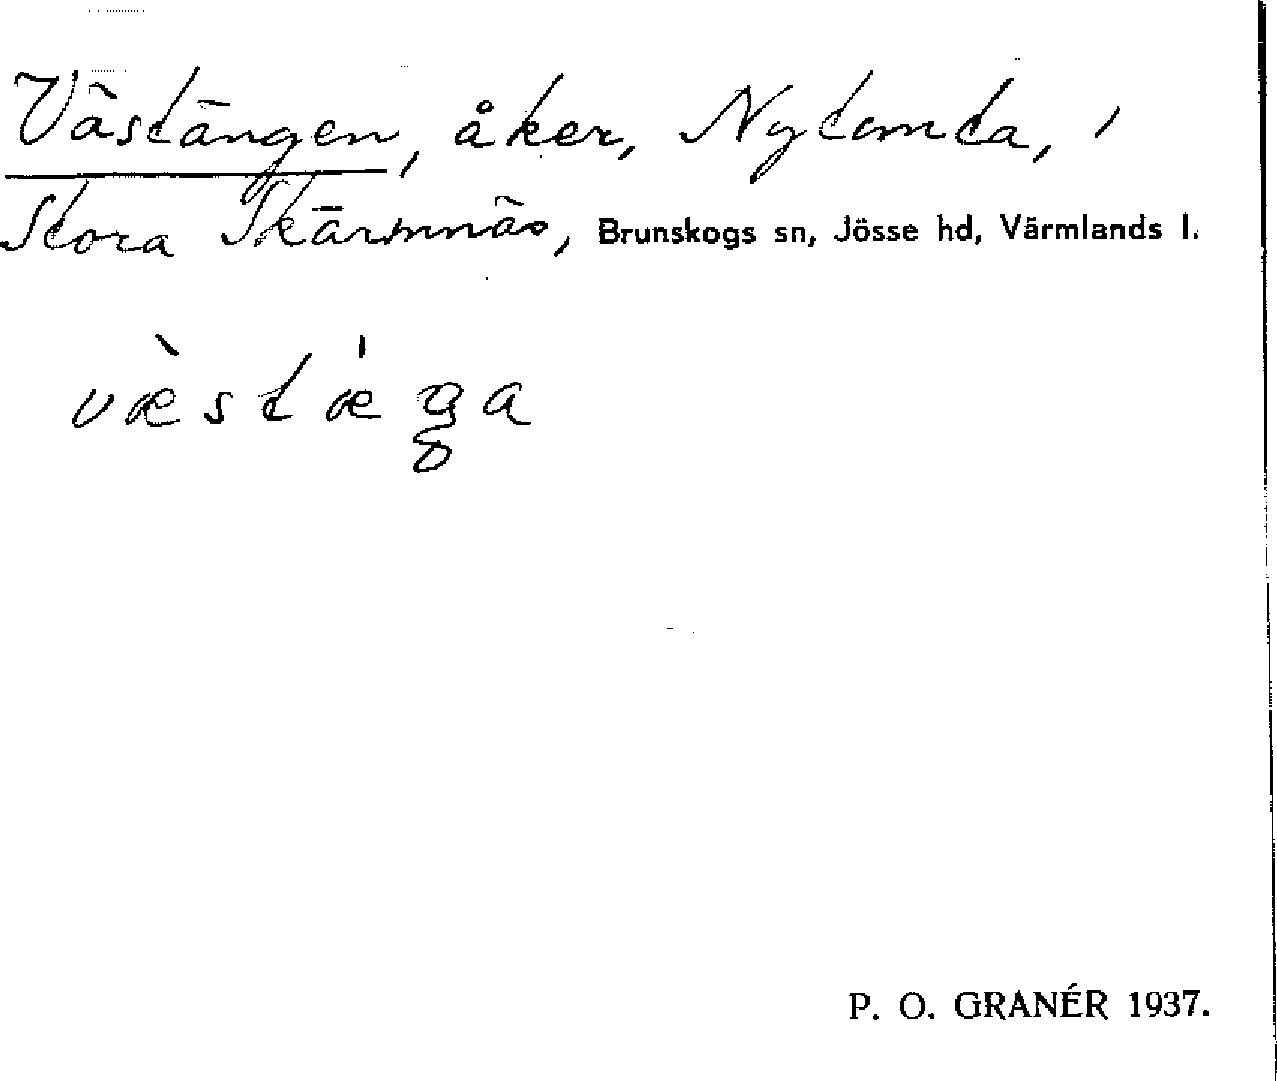 Västängen, åker, Nytomta, i
Stora Skärmnäs, Brunskogs sn, Jösse hd, Värmlands l.
P. O. GRANÉR 1937.